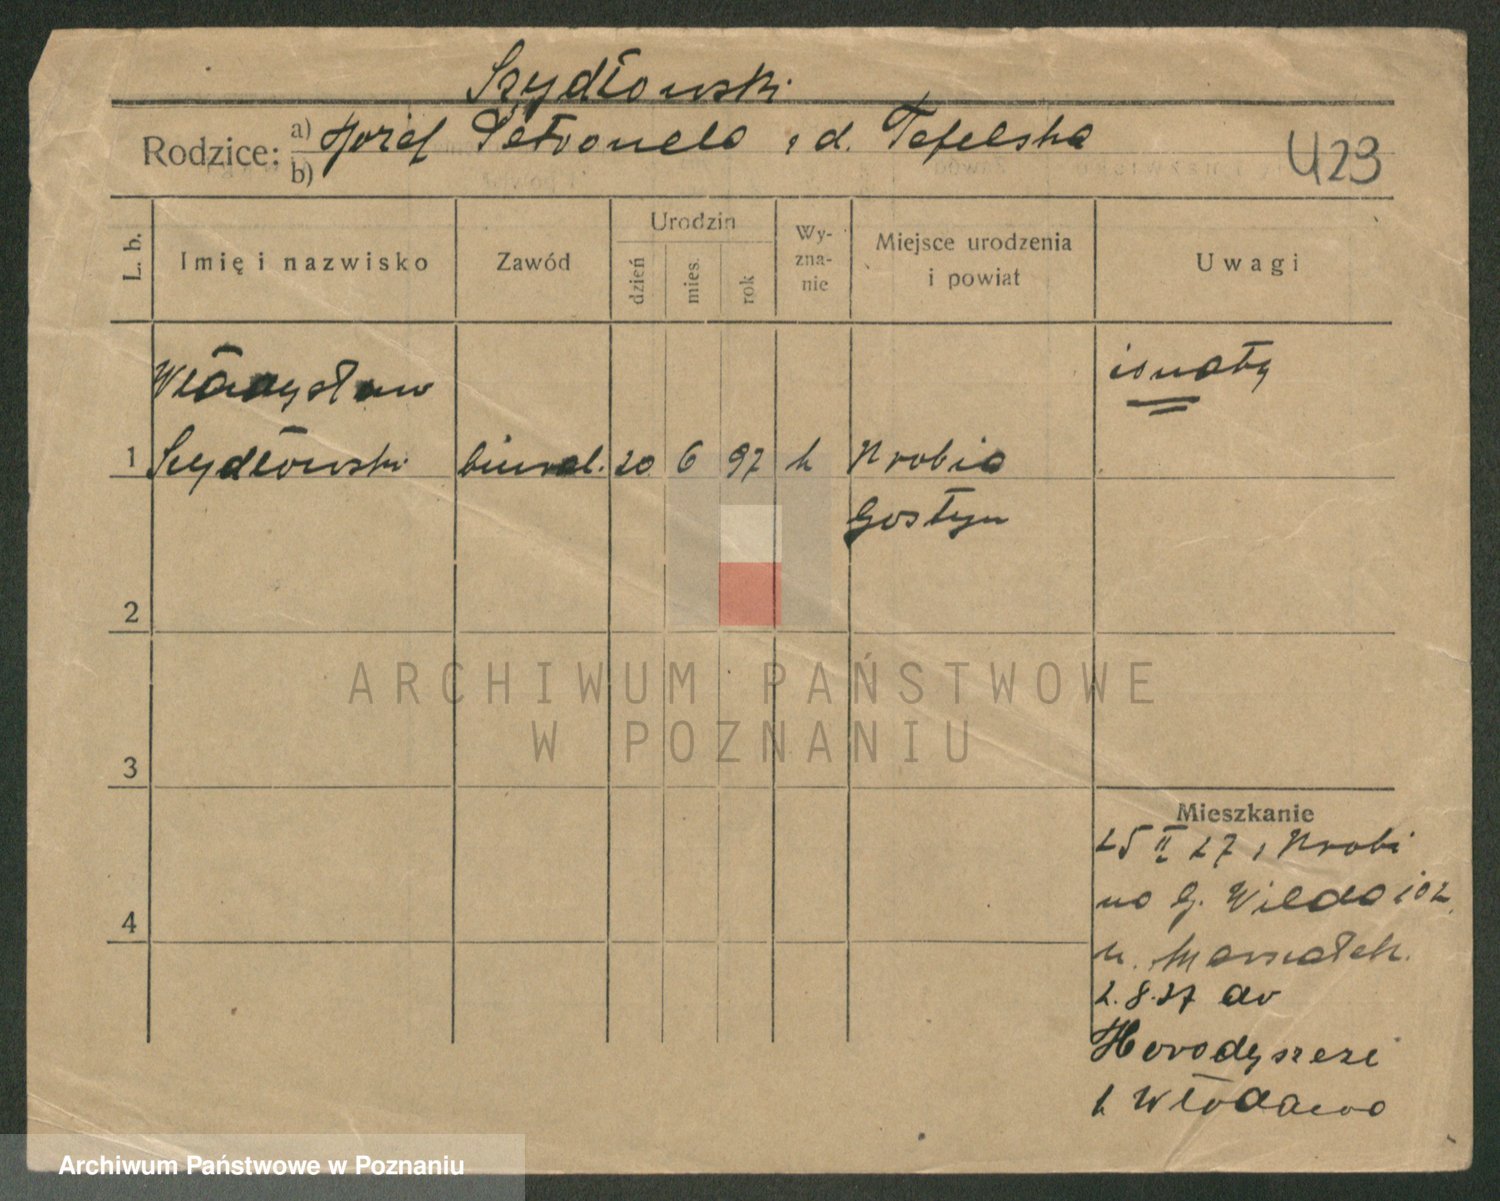 Szydłowski
Rodzice: a) Józef Petronela z d. Tefelska
b)
U23
L. b.
Imię i nazwisko
Zawód
Urodzin
dzień
mies.
rok
Wy-
zna-
nie
Miejsce urodzenia
i powiat
Uwagi
Władysław
żonaty
1 Szydłowski biural. 20 6 97 k Krobia
Gostyn
2
ARCHIWUM PAŃSTWOWE
W POZNANIU
3
Mieszkanie
25 II 27 z Krobi
na G. Wilda 102
u. Marszałek.
4
2.8.27 do
Horodyszcze
k Włodawa
Archiwum Państwowe w Poznaniu